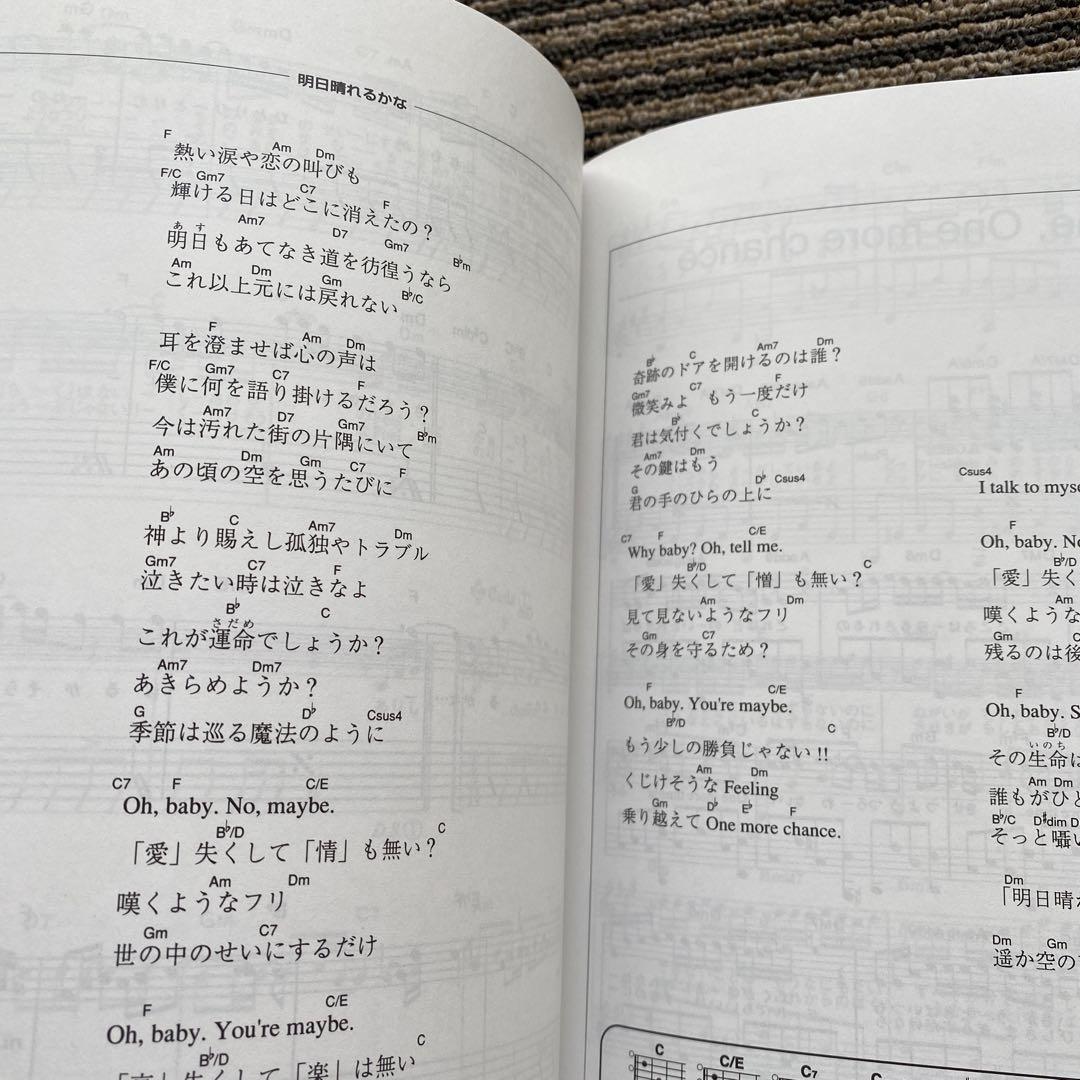 明日晴れるかな
F Am Dm
熱い涙や恋の叫びも
F/C Gm7 C7 F
輝ける日はどこに消えたの?
あす
Am7 D7 Gm7 B♭m
明日もあてなき道を彷徨うなら
Am Dm Gm B♭/C
これ以上元には戻れない
F Am Dm
耳を澄ませば心の声は
F/C Gm7 C7 F
僕に何を語り掛けるだろう?
Am7 D7 Gm7 B♭m
今は汚れた街の片隅にいて
Am Dm Gm C7 F
あの頃の空を思うたびに
B♭ C Am7 Dm
神より賜えし孤独やトラブル
Gm7 C7 F
泣きたい時は泣きなよ
B♭ C
さだめ
これが運命でしょうか?
Am7 Dm7
あきらめようか?
G D♭ Csus4
季節は巡る魔法のように
C7 F C/E
Oh, baby. No, maybe.
B♭/D C
「愛」失くして「情」も無い?
Am Dm
嘆くようなフリ
Gm C7
世の中のせいにするだけ
F C/E
Oh, baby. You're maybe.
B♭/D C
失くして「楽」は無い
B♭ C Am7 Dm
奇跡のドアを開けるのは誰?
Gm7 C7 F
微笑みよ もう一度だけ
B♭ C
君は気付くでしょうか?
Am7 Dm
その鍵はもう
G D♭ Csus4
君の手のひらの上に
C7 F C/E
Why baby? Oh, tell me.
B♭/D C
「愛」失くして「憎」も無い?
Am Dm
見て見ないようなフリ
Gm C7
その身を守るため?
F C/E
Oh, baby. You're maybe.
B♭/D C
もう少しの勝負じゃない!!
Am Dm
くじけそうな Feeling
Gm D♭ E♭ F
乗り越えて One more chance.
Csus4
I talk to myse
F
Oh, baby. No
B♭/D
「愛」失く
Am
嘆くような
Gm C
残るのは後
F
Oh, baby. S
B♭/D
いのち
その生命は
Am Dm
誰もがひと
B♭/C D♯dim D
そっと囁い
Dm
「明日晴
Dm Gm
遥か空の
C C/E C7